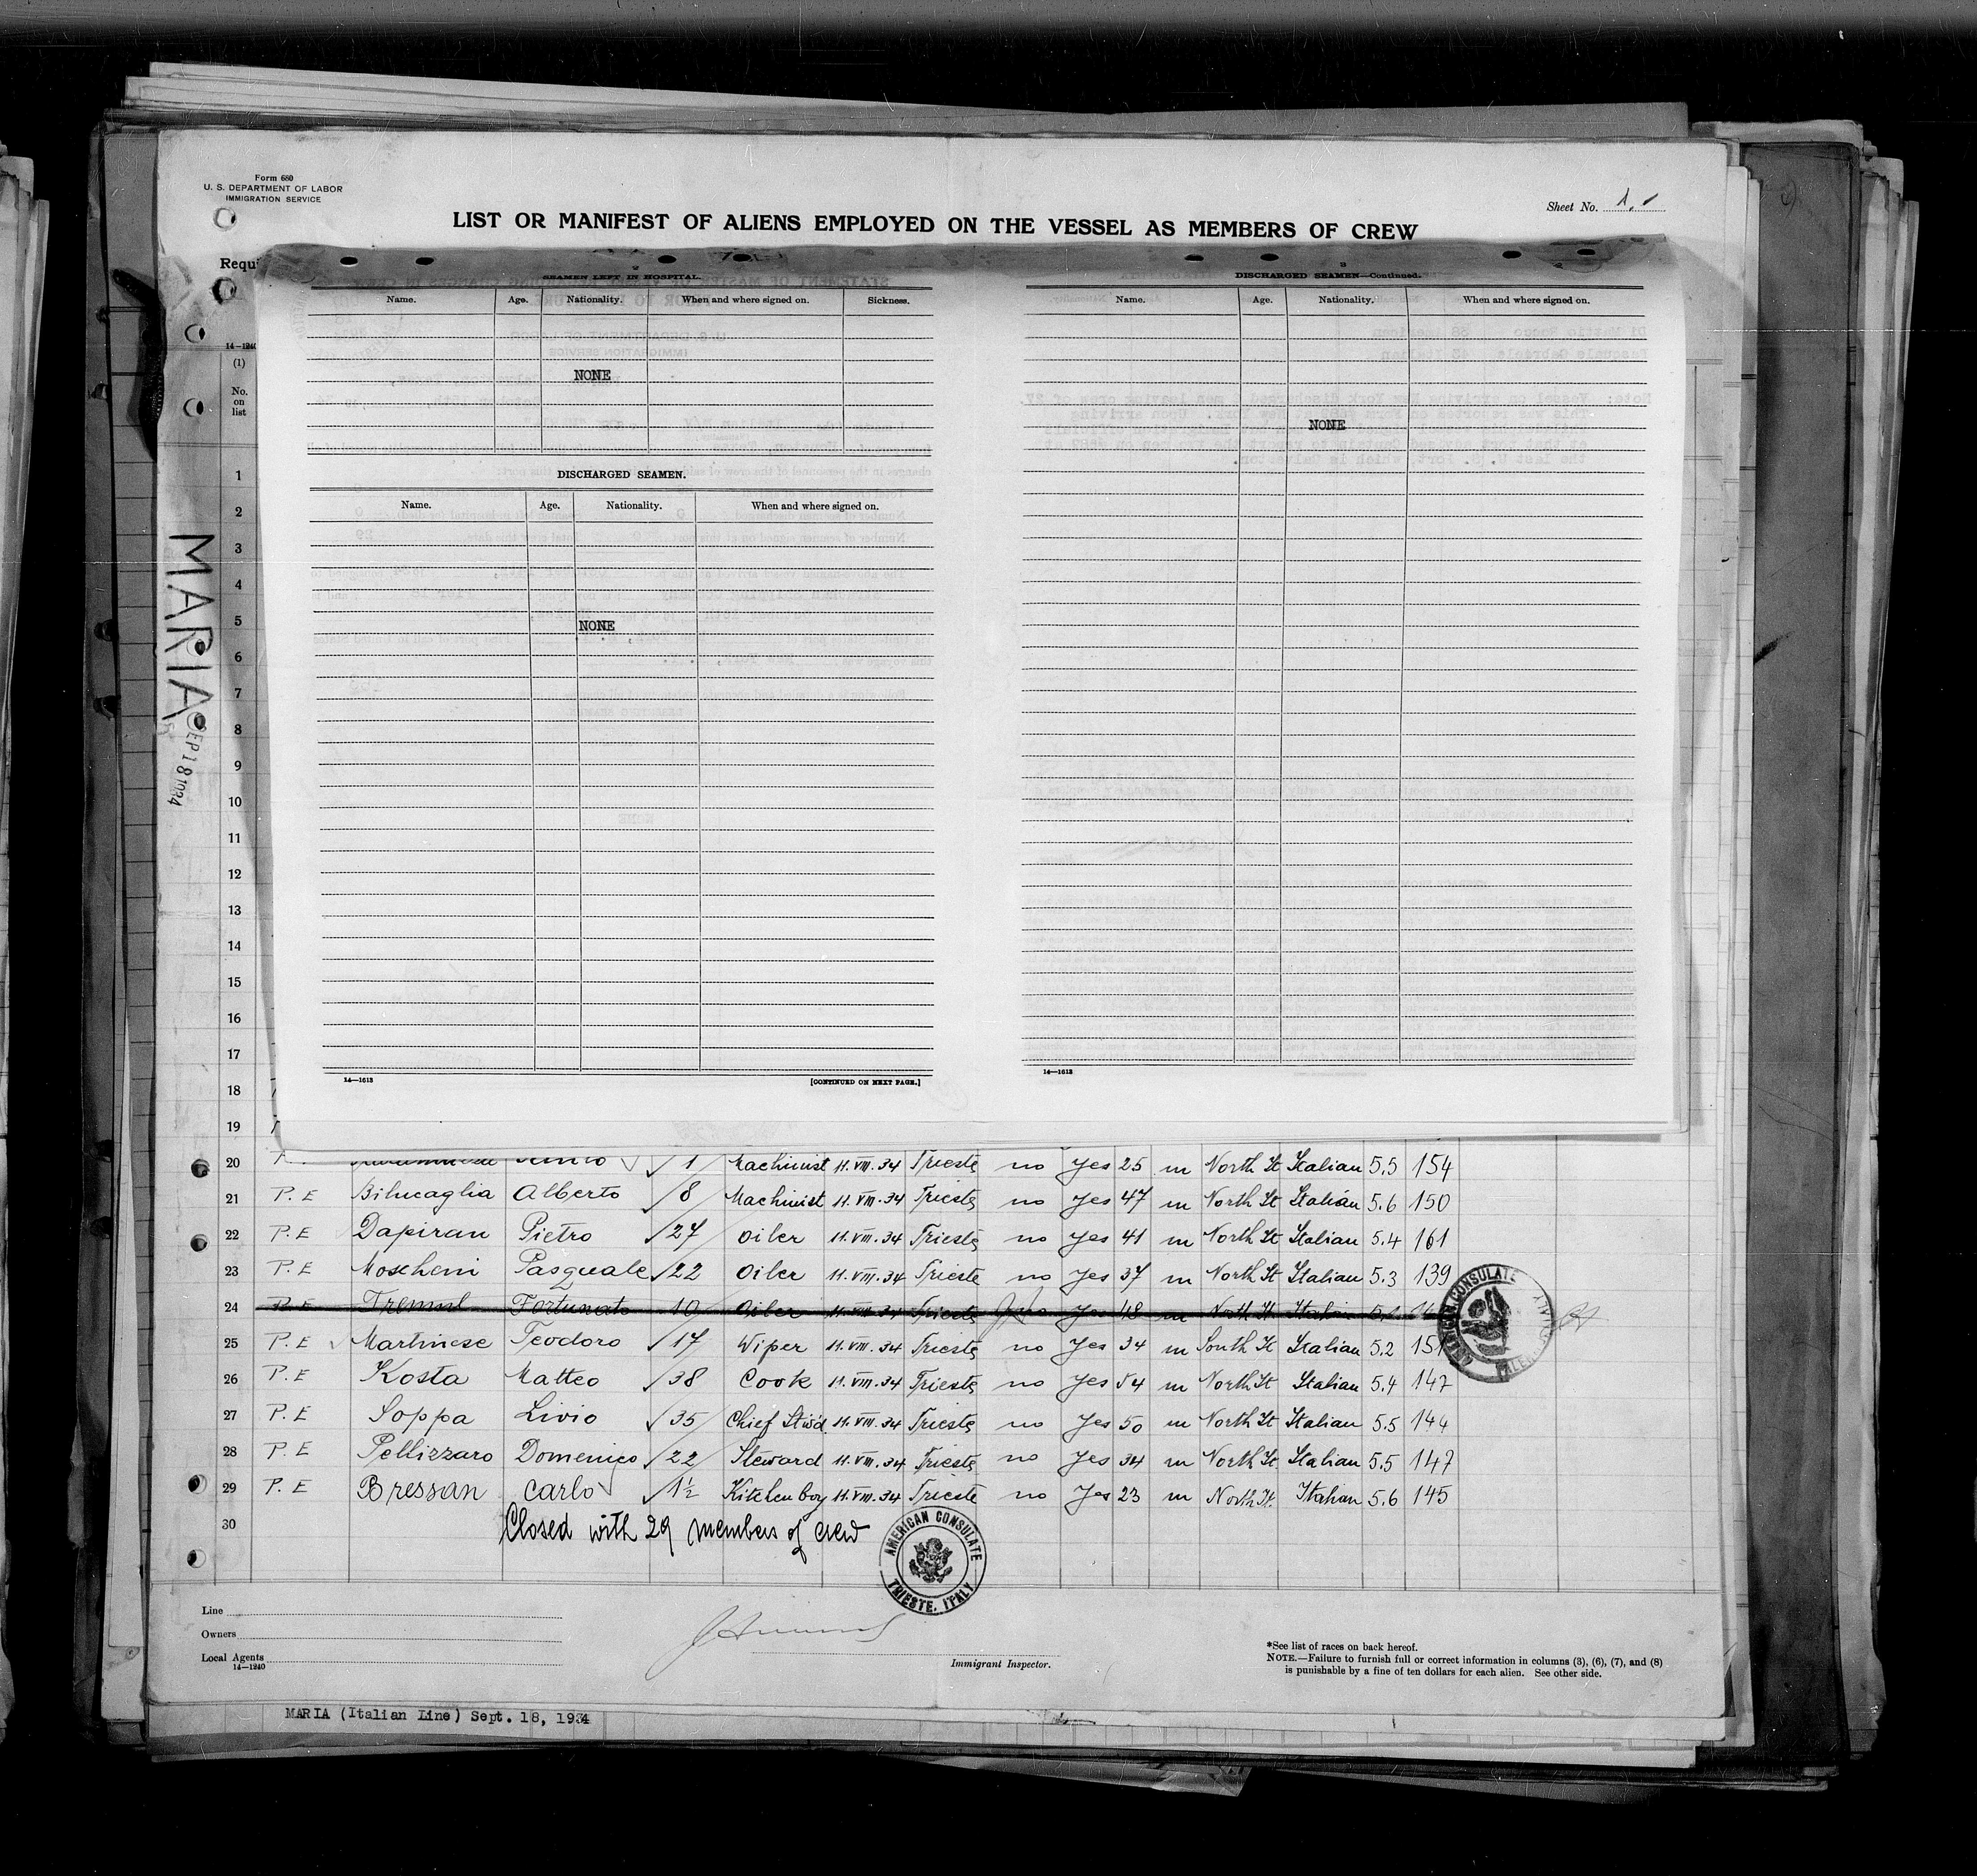 Form 680
U. S. DEPARTMENT OF LABOR
IMMIGRATION SERVICE
Sheet No.
LIST OR MANIFEST OF ALIENS EMPLOYED ON THE VESSEL AS MEMBERS OF CREW
Requi
14-1240
(1)
No.
on
list
MARIA
SEP 18 1934
2
SEAMEN LEFT IN HOSPITAL.
Name. Age. Nationality. When and where signed on. Sickness.
NONE
DISCHARGED SEAMEN.
Name. Age. Nationality. When and where signed on.
NONE
14—1613 [CONTINUED ON NEXT PAGE.]
3
DISCHARGED SEAMEN—Continued.
Name. Age. Nationality. When and where signed on.
NONE
14—1613
1
2
3
4
5
6
7
8
9
10
11
12
13
14
15
16
17
18
19
20 1 Machinist 11.VIII.34 Trieste no Yes 25 m North It Italian 5.5 154
21 P.E Bilucaglia Alberto 8 Machinist 11.VIII.34 Trieste no Yes 47 m North It Italian 5.6 150
22 P.E Dapiran Pietro 27 Oiler 11.VIII.34 Trieste no Yes 41 m North It Italian 5.4 161
23 P.E Moscheni Pasquale 22 Oiler 11.VIII.34 Trieste no Yes 37 m North It Italian 5.3 139
24 P.E Tremul Fortunato 10 Oiler 11.VIII.34 Trieste no Yes 48 m North It Italian
25 P.E Martinese Teodoro 17 Wiper 11.VIII.34 Trieste no Yes 34 m South It Italian 5.2 151
26 P.E Kosta Matteo 38 Cook 11.VIII.34 Trieste no Yes 54 m North It Italian 5.4 147
27 P.E Soppa Livio 35 Chief Stwd. 11.VIII.34 Trieste no Yes 50 m North It Italian 5.5 144
28 P.E Pellizzaro Domenico 22 Steward 11.VIII.34 Trieste no Yes 34 m North It. Italian 5.5 147
29 P.E Bressan Carlo 1½ Kitchen boy 11.VIII.34 Trieste no Yes 23 m North It. Italian 5.6 145
30
Closed with 29 members of crew
AMERICAN CONSULATE
TRIESTE, ITALY
AMERICAN CONSULATE
ITALY
Line
Owners
Local Agents
14—1240
Immigrant Inspector.
*See list of races on back hereof.
NOTE.—Failure to furnish full or correct information in columns (3), (6), (7), and (8)
is punishable by a fine of ten dollars for each alien. See other side.
MARIA (Italian Line) Sept. 18, 1934